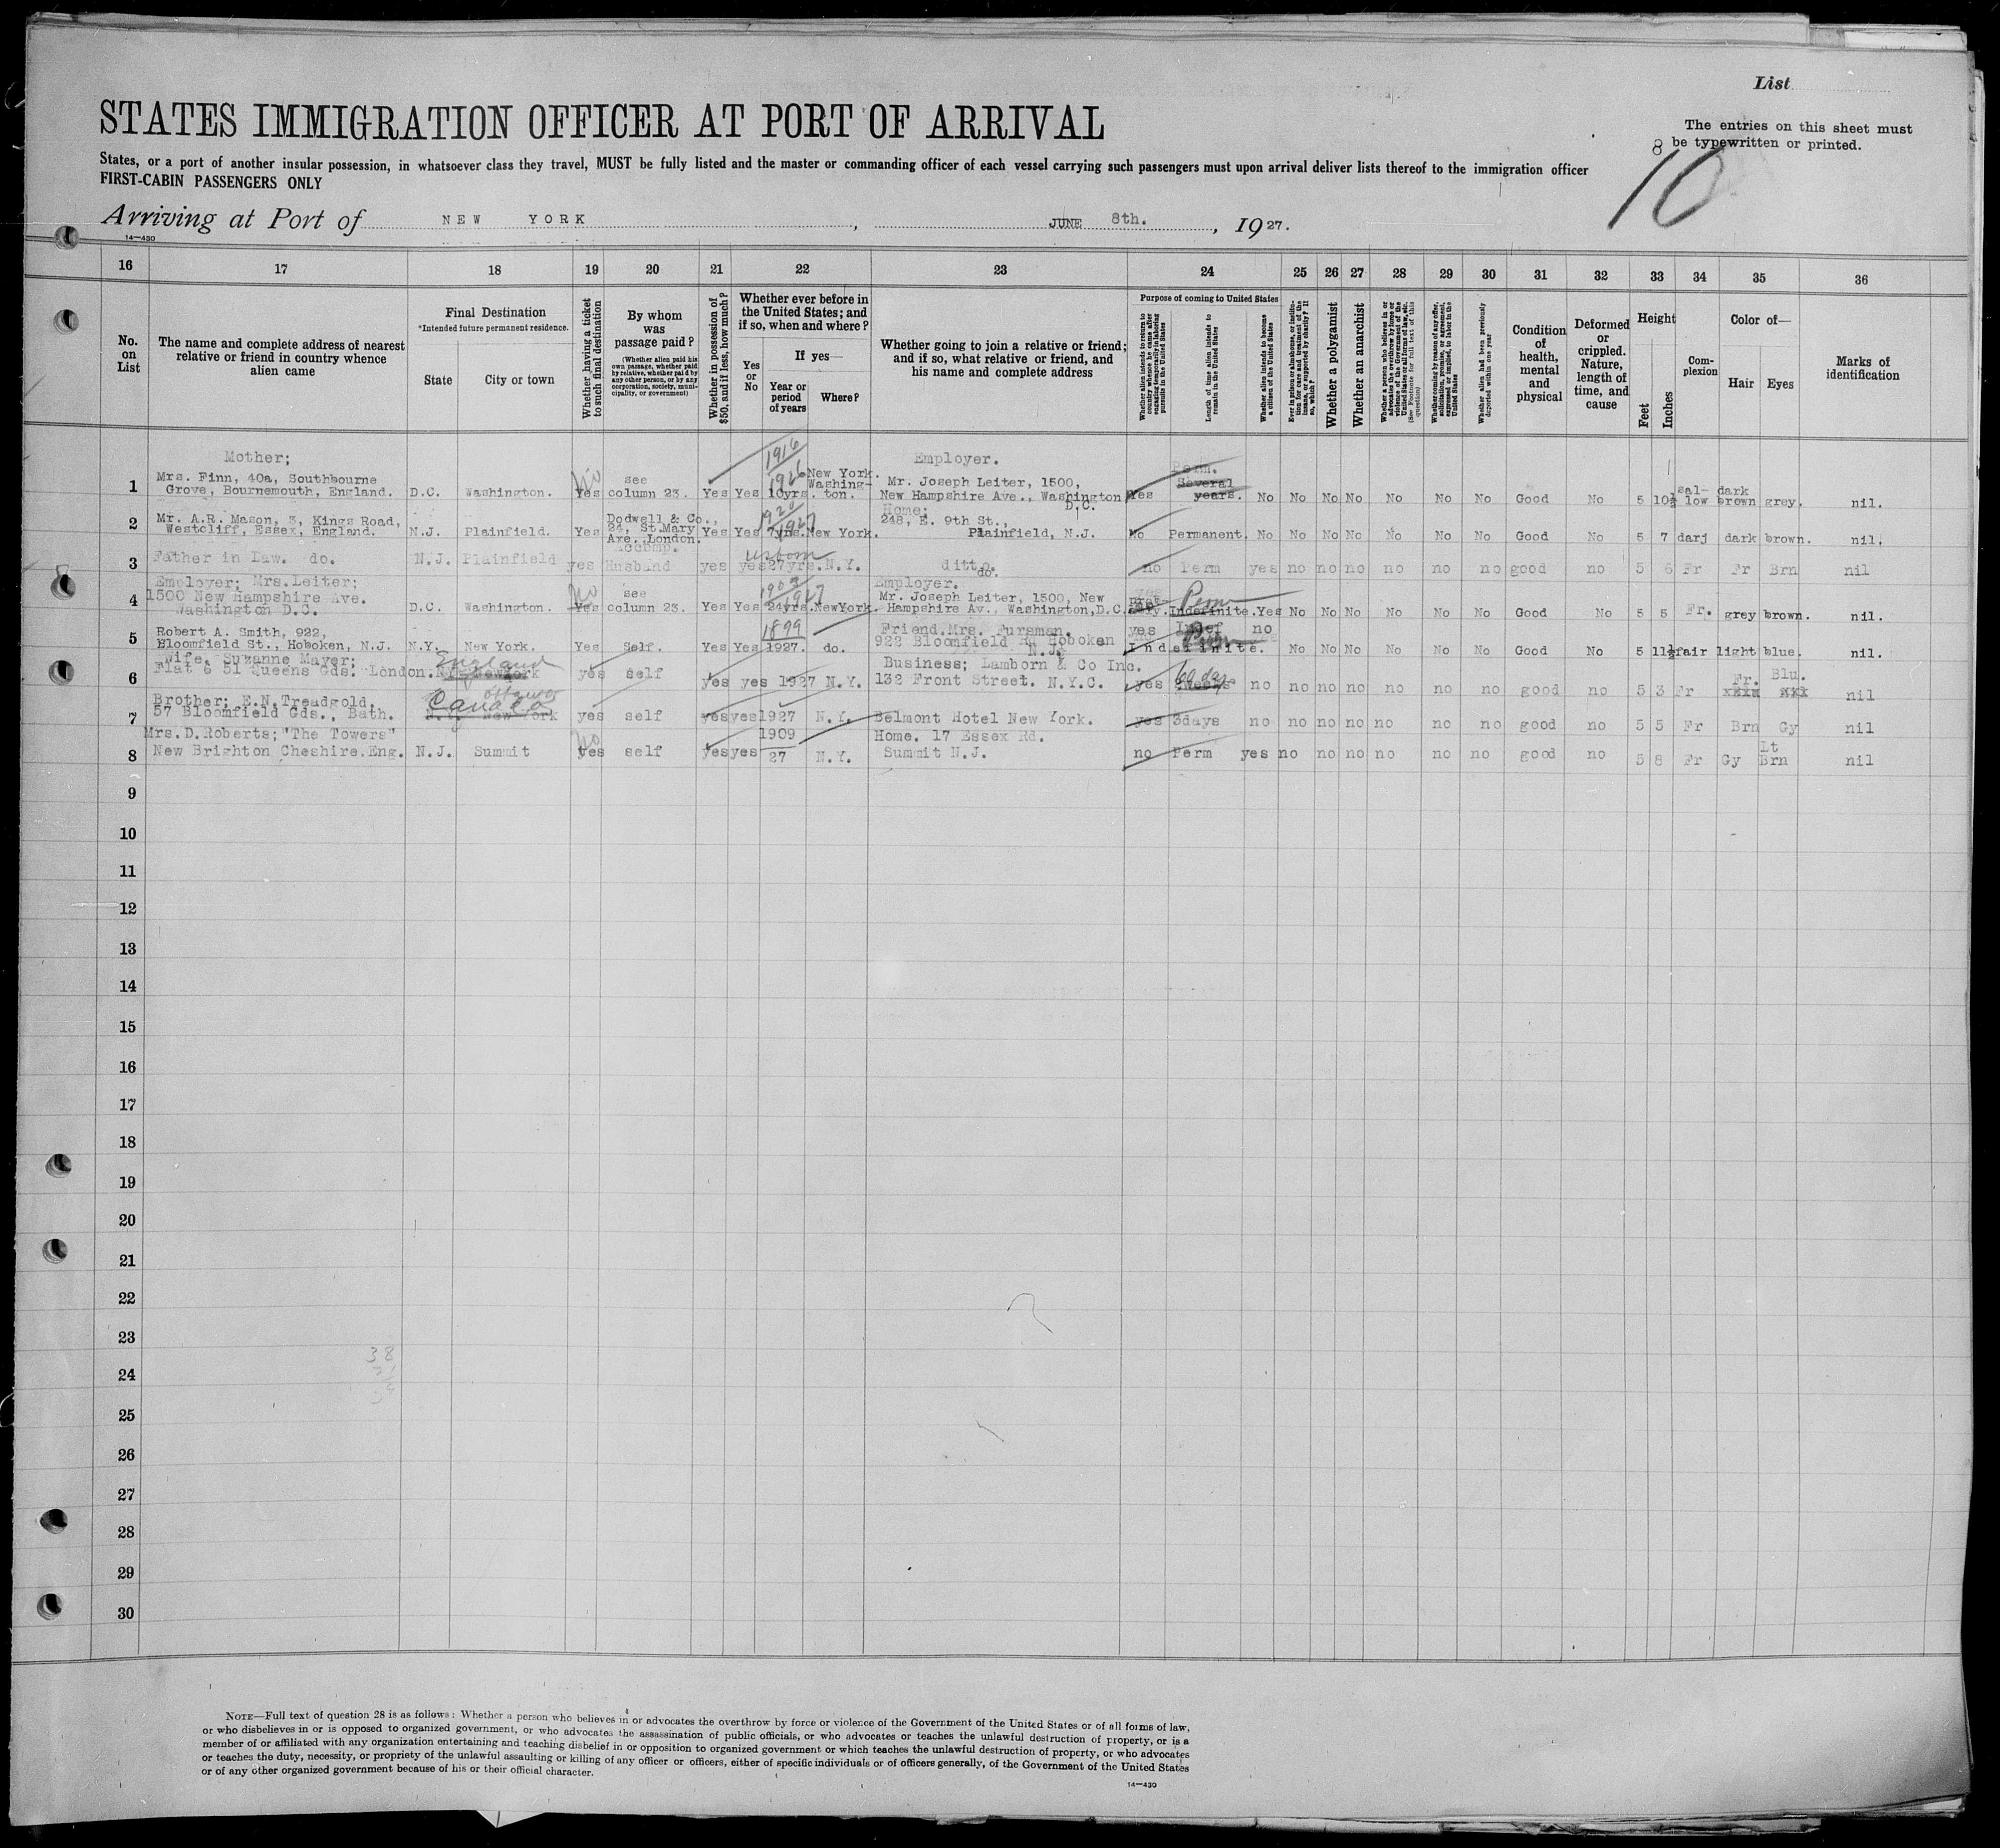 List
STATES IMMIGRATION OFFICER AT PORT OF ARRIVAL
The entries on this sheet must
8 be typewritten or printed.
10
States, or a port of another insular possession, in whatsoever class they travel, MUST be fully listed and the master or commanding officer of each vessel carrying such passengers must upon arrival deliver lists thereof to the immigration officer
FIRST-CABIN PASSENGERS ONLY
Arriving at Port of NEW YORK, JUNE 8th., 1927.
14—430
16 17 18 19 20 21 22 23 24 25 26 27 28 29 30 31 32 33 34 35 36
No. on List
The name and complete address of nearest relative or friend in country whence alien came
Final Destination
*Intended future permanent residence.
State
City or town
Whether having a ticket to such final destination
By whom was passage paid?
(Whether alien paid his own passage, whether paid by relative, whether paid by any other person, or by any corporation, society, municipality, or government)
Whether in possession of $50, and if less, how much?
Whether ever before in the United States; and if so, when and where?
Yes or No
If yes—
Year or period of years
Where?
Whether going to join a relative or friend; and if so, what relative or friend, and his name and complete address
Purpose of coming to United States
Whether alien intends to return to country whence he came after engaging temporarily in laboring pursuits in the United States
Length of time alien intends to remain in the United States
Whether alien intends to become a citizen of the United States
Ever in prison or almshouse, or institution for care and treatment of the insane, or supported by charity? If so, which?
Whether a polygamist
Whether an anarchist
Whether a person who believes in or advocates the overthrow by force or violence of the Government of the United States or all forms of law, etc. (See Footnote for full text of this question)
Whether coming by reason of any offer, solicitation, promise, or agreement, expressed or implied, to labor in the United States
Whether alien had been previously deported within one year
Condition of health, mental and physical
Deformed or crippled. Nature, length of time, and cause
Height
Feet
Inches
Complexion
Color of—
Hair
Eyes
Marks of identification
Mother; 1916 Employer. Perm.
1 Mrs. Finn, 40a, Southbourne No see 1926 New York. Mr. Joseph Leiter, 1500, Several sal- dark
Grove, Bournemouth, England. D.C. Washington. Yes column 23. Yes Yes 10yrs. Washing-ton. New Hampshire Ave., Washington D.C. Yes years. No No No No No No No Good No 5 10½ low brown grey. nil.
2 Mr. A.R. Mason, 3, Kings Road, Dodwell & Co., 1920 Home;
Westcliff, Essex, England. N.J. Plainfield. Yes 24, St.Mary Axe, London. Yes Yes 1927 7yrs. New York. 248, E. 9th St., Plainfield, N.J. No Permanent. No No No No No No No Good No 5 7 darj dark brown. nil.
3 Father in Law. do. N.J. Plainfield yes accomp. Husband yes yes usborn 27yrs. N.Y. ditto do. no Perm yes no no no no no no good no 5 6 Fr Fr Brn nil
4 Employer; Mrs.Leiter; No see Employer.
1500 New Hampshire Ave. 1927 Mr. Joseph Leiter, 1500, New Perm
Washington D.C. D.C. Washington. Yes column 23. Yes Yes 24yrs. NewYork. Hampshire Av., Washington, D.C. Indefinite. Yes No No No No No No Good No 5 5 Fr. grey brown. nil.
5 Robert A. Smith, 922, 1899 Friend.Mrs. Fursman. yes Indef no
Bloomfield St., Hoboken, N.J. N.Y. New York. Yes Self. Yes Yes 1927. do. 922 Bloomfield Rd Hoboken N.J. Indefinite. No No No No No No Good No 5 11½ fair light blue. nil.
6 Wife, Suzanne Mayer; England Business; Lamborn & Co Inc. 60 days Fr. Blu.
Flat 6 51 Queens Gds. London. N.Y. NewYork yes self yes yes 1927 N.Y. 132 Front Street. N.Y.C. yes weeks no no no no no no no good no 5 3 Fr xxxx xxx nil
7 Brother; E.N.Treadgold, Ottawa Canada
57 Bloomfield Gds., Bath. N.Y. New York yes self yes yes 1927 N.Y. Belmont Hotel New York. yes 3days no no no no no no no good no 5 5 Fr Brn Gy nil
8 Mrs.D.Roberts;"The Towers" No 1909 Home. 17 Essex Rd.
New Brighton Cheshire.Eng. N.J. Summit yes self yes yes 27 N.Y. Summit N.J. no Perm yes no no no no no no good no 5 8 Fr Gy Lt Brn nil
9
10
11
12
13
14
15
16
17
18
19
20
21
22
23
38
24
25
26
27
28
29
30
NOTE—Full text of question 28 is as follows: Whether a person who believes in or advocates the overthrow by force or violence of the Government of the United States or of all forms of law,
or who disbelieves in or is opposed to organized government, or who advocates the assassination of public officials, or who advocates or teaches the unlawful destruction of property, or is a
member of or affiliated with any organization entertaining and teaching disbelief in or opposition to organized government or which teaches the unlawful destruction of property, or who advocates
or teaches the duty, necessity, or propriety of the unlawful assaulting or killing of any officer or officers, either of specific individuals or of officers generally, of the Government of the United States
or of any other organized government because of his or their official character.
14—430